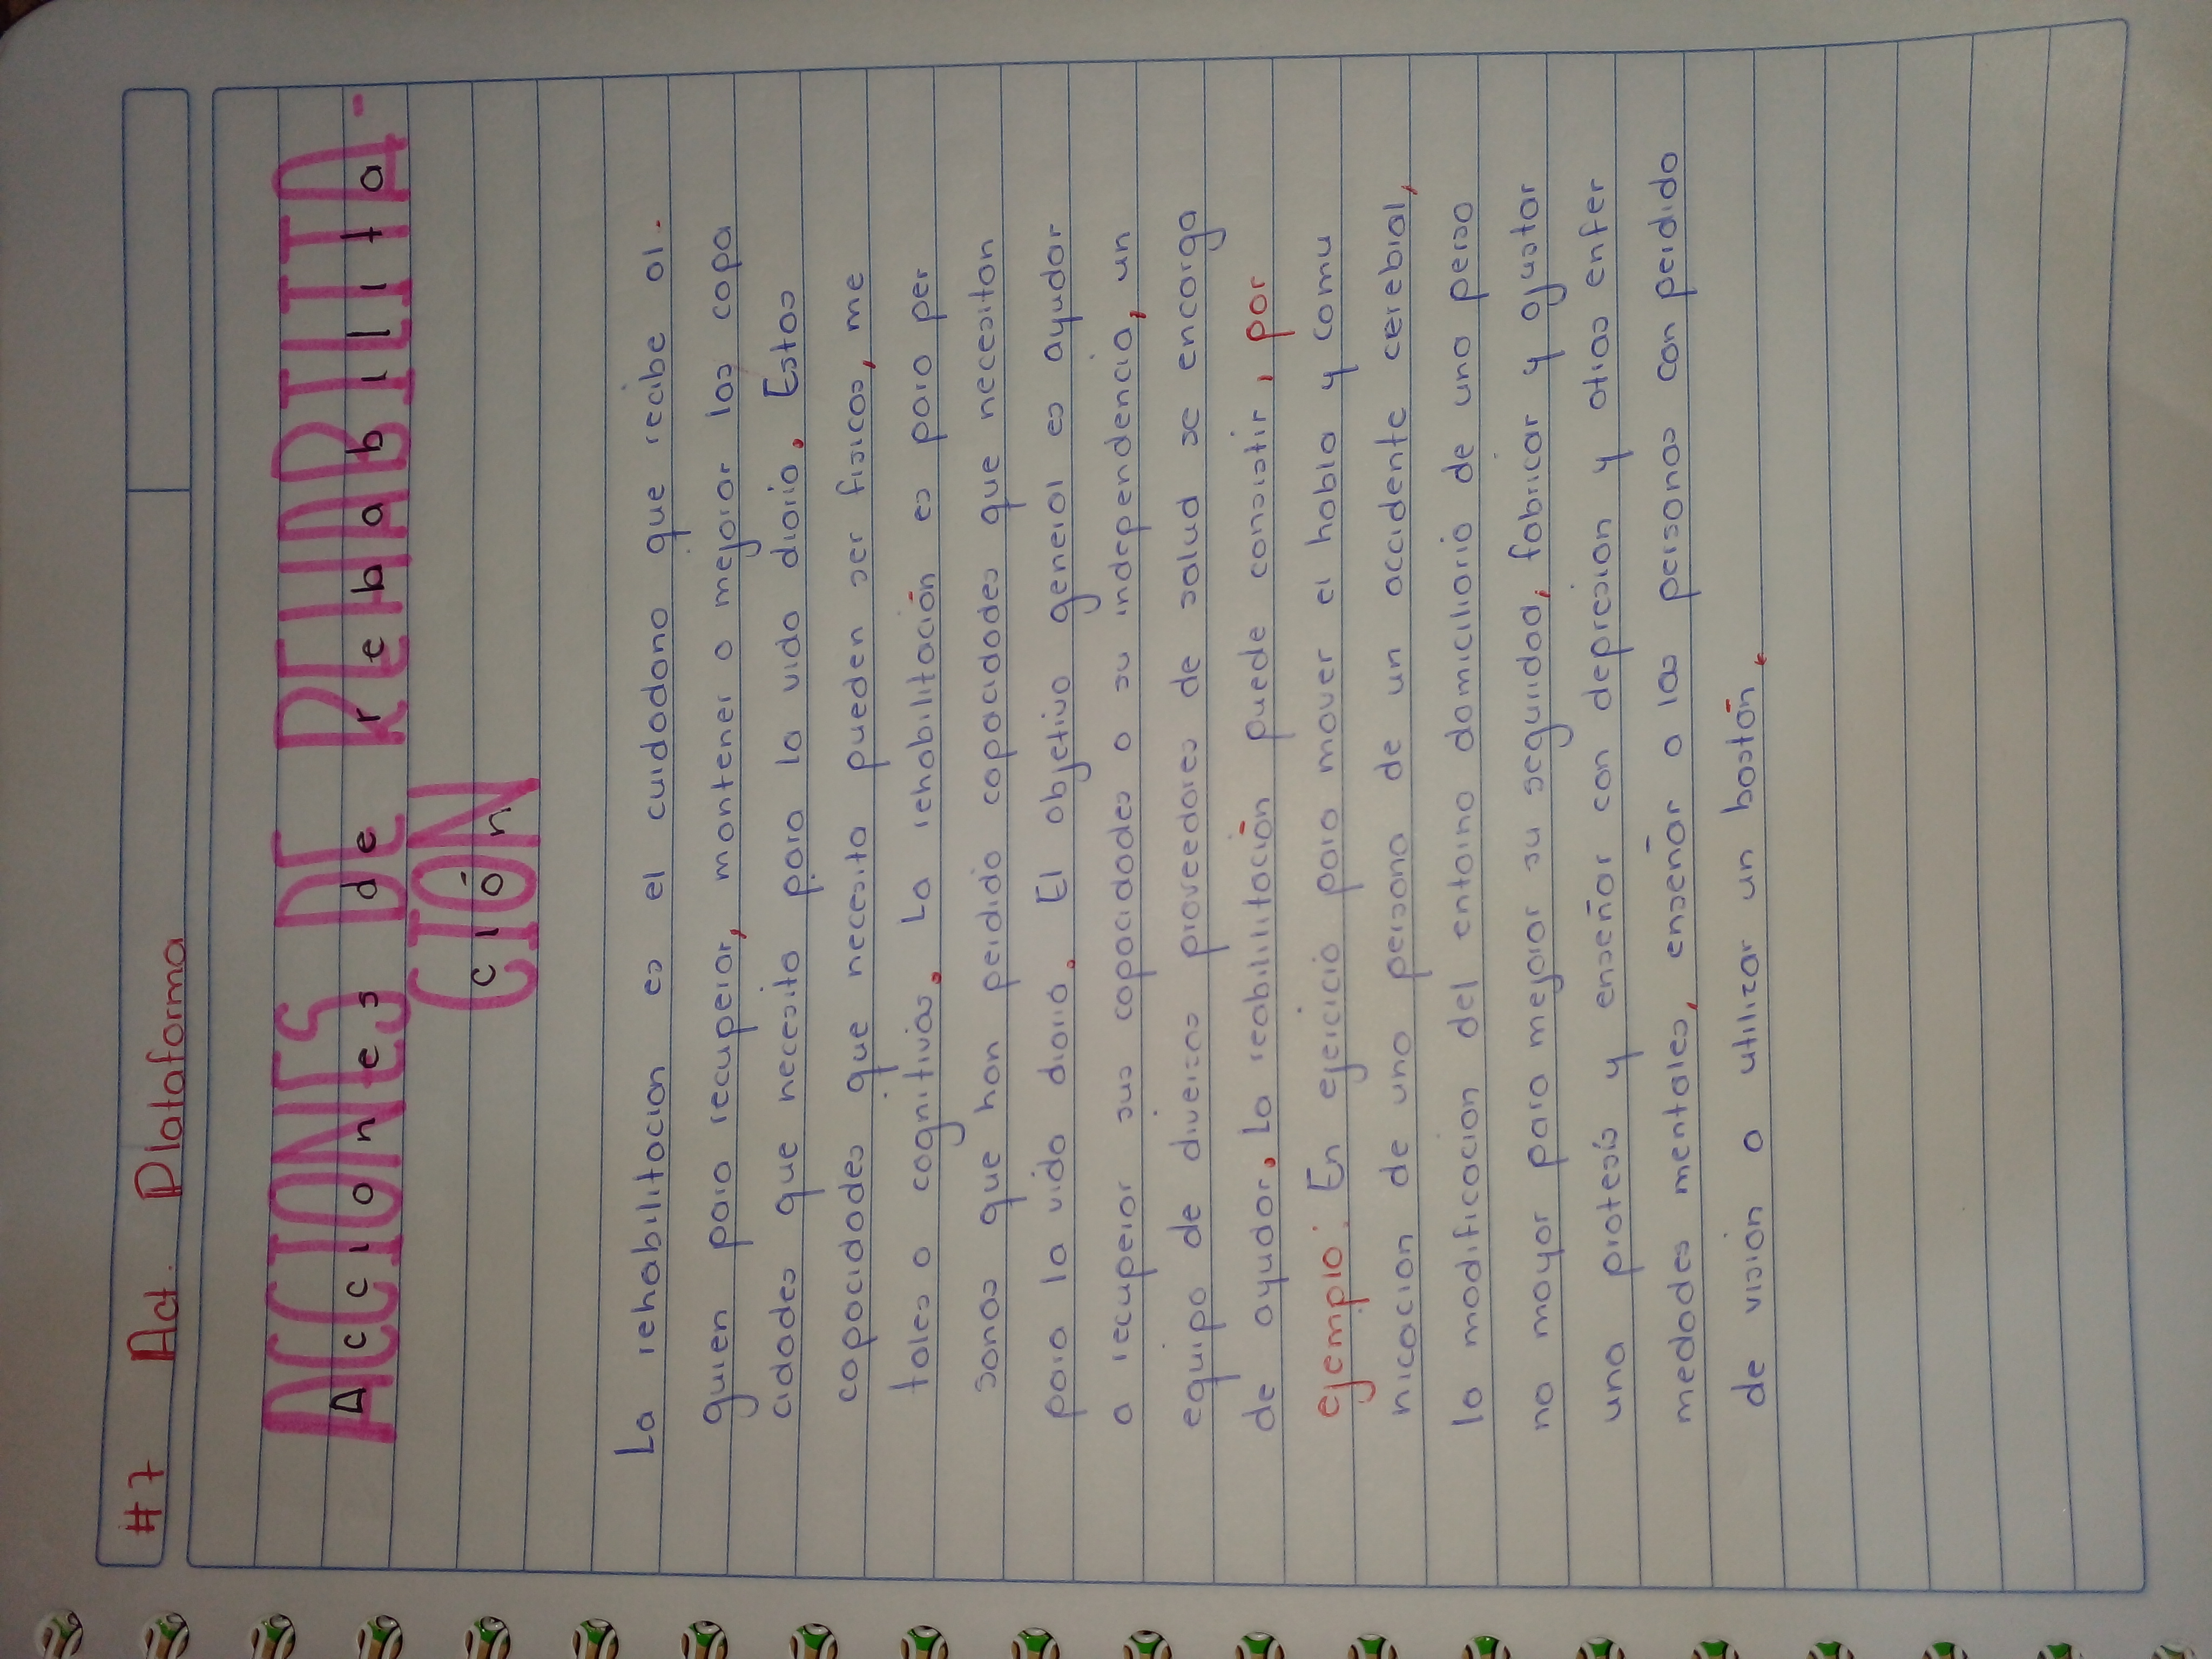 #7 Act. Plataforma
ACCIONES DE REHABILITA-
Acciones de rehabilita
CION
ción
La rehabilitacion es el cuidadono que recibe al.
guien para recuperar, mantener o mejorar las capa
cidades que necesita para la vida diaria. Estas
capacidades que necesita pueden ser fisicas, me
tales o cognitivas. La rehabilitación es para per
sonas que han perdido capacidades que necesitan
para la vida diaria. El objetivo general es ayudar
a recuperar sus capacidades o su independencia, un
equipo de diversos proveedores de salud se encarga
de ayudar. La reabilitación puede consistir, por
ejemplo: En ejercicio para mover el habla y comu
nicacion de una persona de un accidente cerebral,
la modificacion del entorno domiciliario de una perso
na mayor para mejorar su seguridad, fabricar y ajustar
una protesís y enseñar con depresion y otras enfer
medades mentales, enseñar a las personas con perdida
de vision a utilizar un bastón.